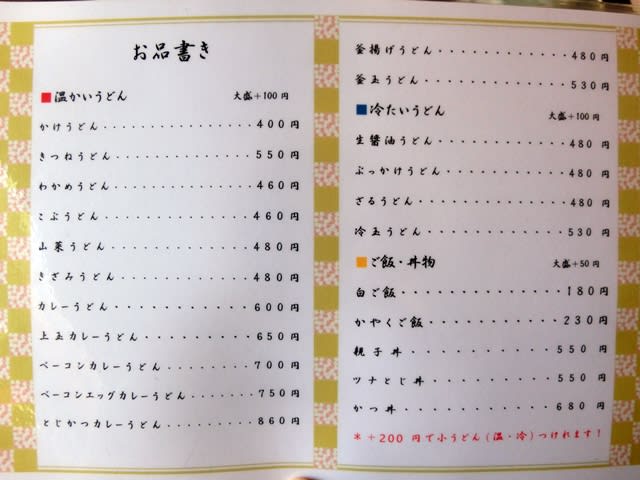 お品書き
■温かいうどん 大盛+100円
かけうどん................400円
きつねうどん..............550円
わかめうどん..............460円
こぶうどん................460円
山菜うどん................480円
きざみうどん..............480円
カレーうどん..............600円
上玉カレーうどん..........650円
ベーコンカレーうどん......700円
ベーコンエッグカレーうどん....750円
とじかつカレーうどん......860円
釜揚げうどん............480円
釜玉うどん..............530円
■冷たいうどん 大盛+100円
生醤油うどん............480円
ぶっかけうどん..........480円
ざるうどん..............480円
冷玉うどん..............530円
■ご飯・丼物 大盛+50円
白ご飯..............180円
かやくご飯..........230円
親子丼............550円
ツナとじ丼..........550円
かつ丼............680円
*+200円で小うどん(温・冷)つけれます!